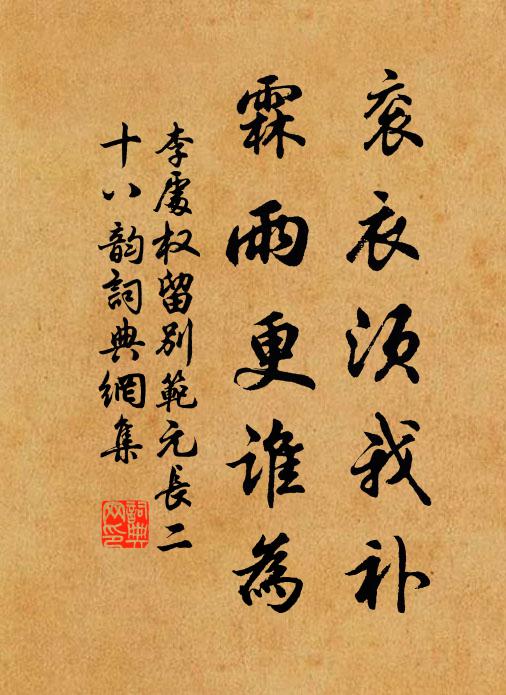 衮衣须我补
霖雨更谁為
李處权留别範元長二
十八韵詞典網集
詞典網印